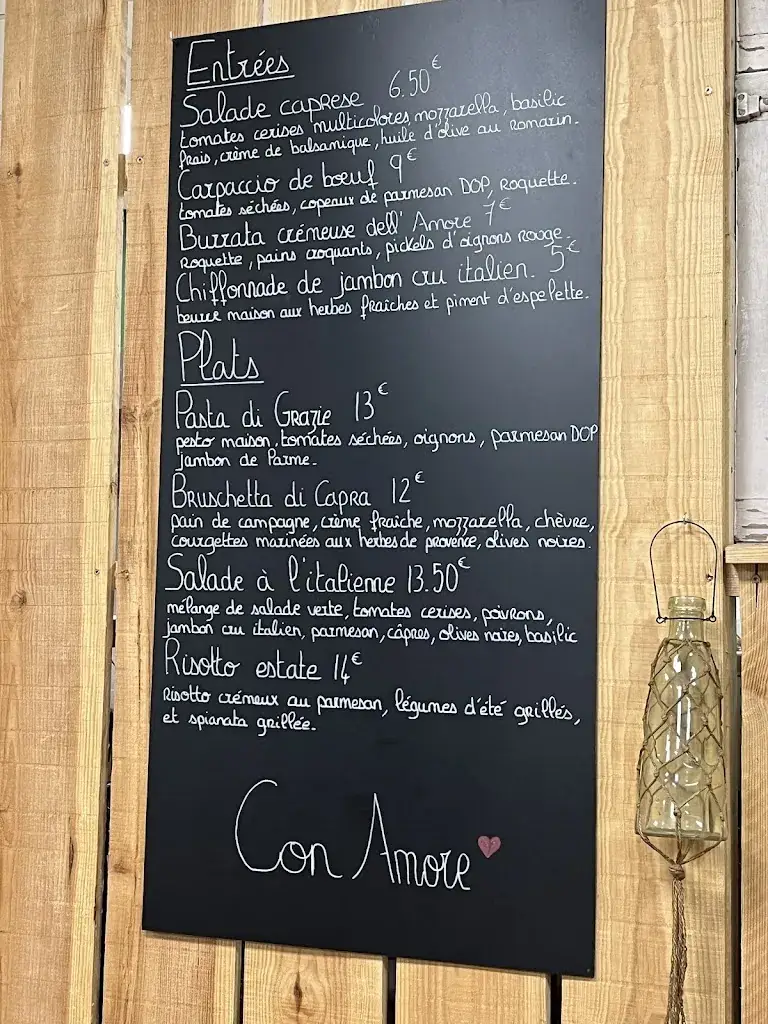 Entrées
Salade caprese 6.50€
tomates cerises multicolores, mozzarella, basilic
frais, crème de balsamique, huile d'olive au romarin.
Carpaccio de bœuf 9€
tomates séchées, copeaux de parmesan DOP, roquette.
Burrata crémeuse dell'Amore 7€
Roquette, pains croquants, pickels d'oignons rouge.
Chiffonnade de jambon cru italien. 5€
beurre maison aux herbes fraîches et piment d'espelette.
Plats
Pasta di Grazie 13€
pesto maison, tomates séchées, oignons, parmesan DOP
jambon de Parme.
Bruschetta di Capra 12€
pain de campagne, crème fraîche, mozzarella, chèvre,
courgettes marinées aux herbes de provence, olives noires.
Salade à l'italienne 13.50€
mélange de salade verte, tomates cerises, poivrons,
jambon cru italien, parmesan, câpres, olives noires, basilic
Risotto estate 14€
Risotto crémeux au parmesan, légumes d'été grillés,
et spianata grillée.
Con Amore